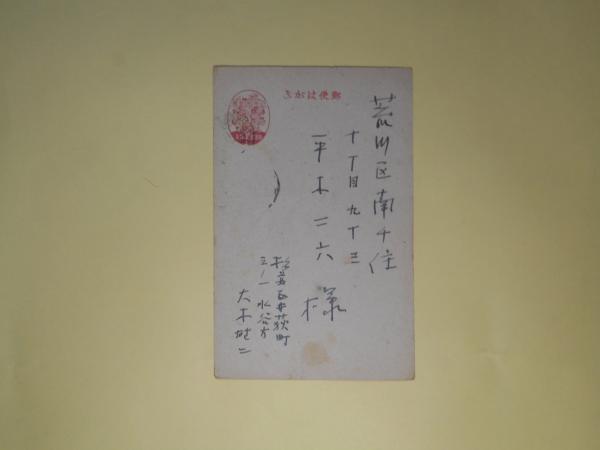 郵便はがき
荒川区南千住
十丁目九十三
平木二六
様
井荻町
三ノ一 水谷方
大木雄二